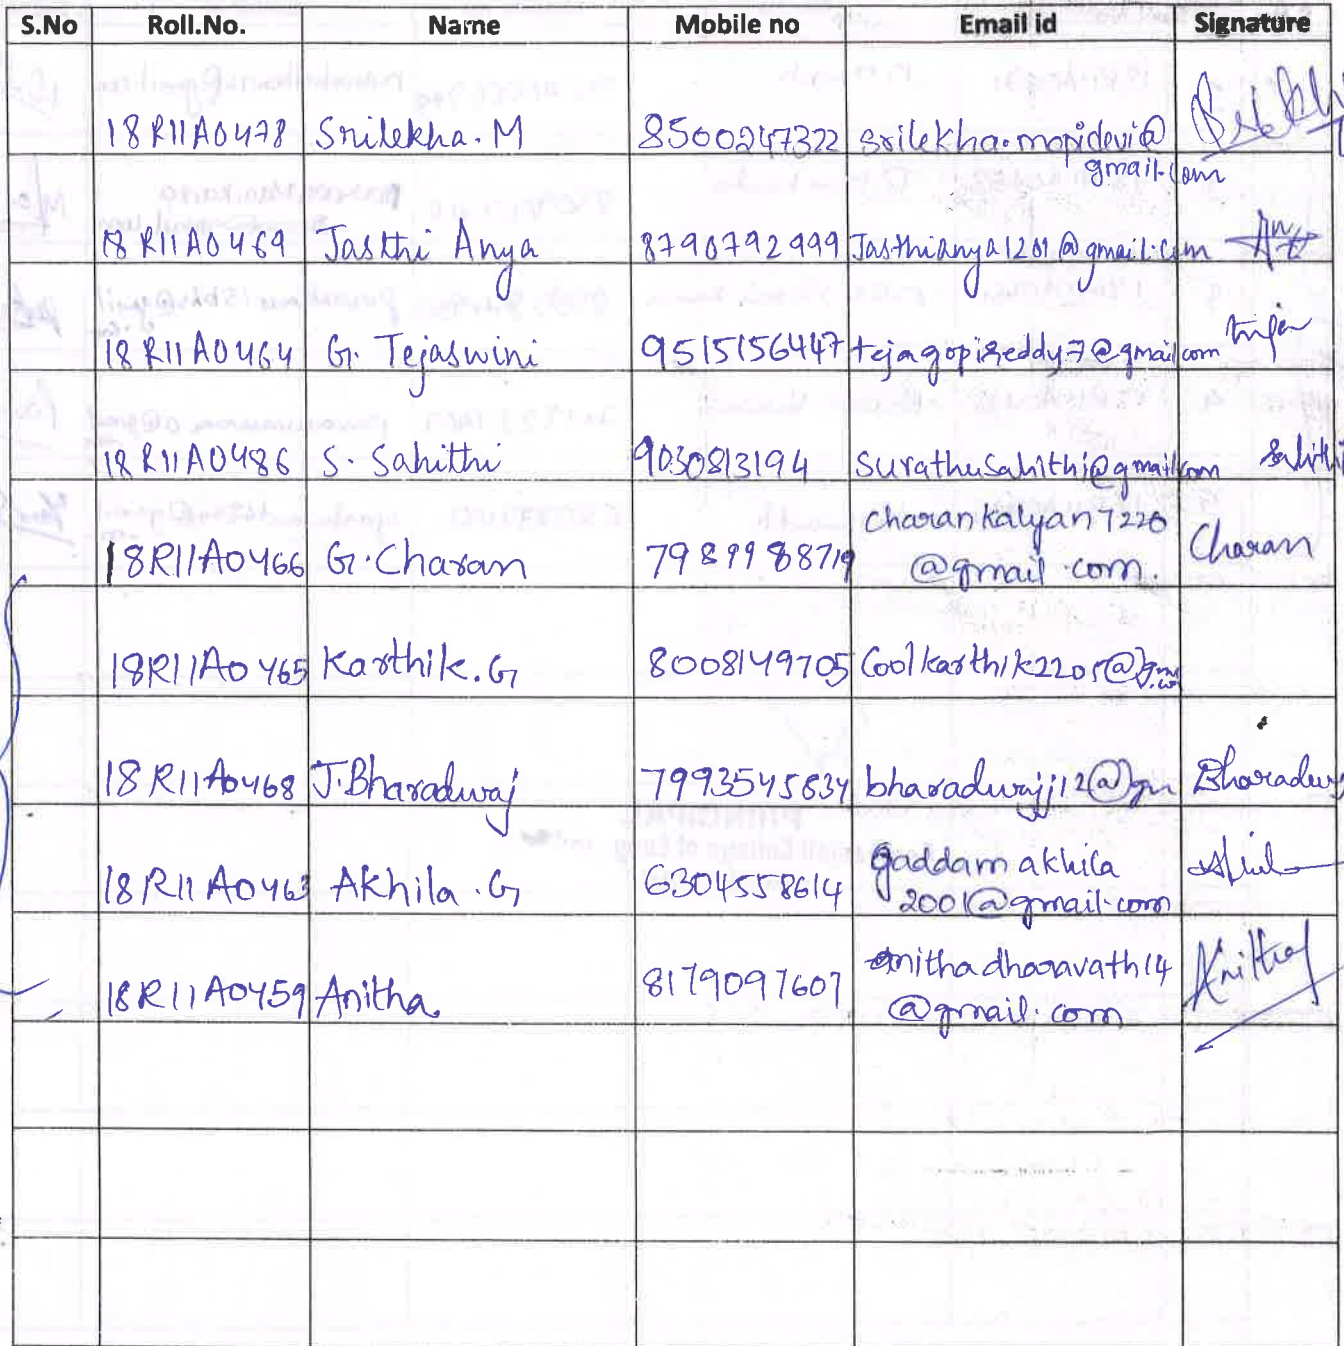 S.No Roll.No. Name Mobile no Email id Signature
18R11A0478 Srilekha.M 8500247322 srilekha.mopidevi@
gmail.com
18R11A0469 Jasthi Anya 8790792999 Jasthianya1201@gmail.com
18R11A0464 G. Tejaswini 9515156447 tejagopireddy7@gmail.com
18R11A0486 S. Sahithi 9030813194 Surathusahithi@gmail.com Sahithi
charankalyan7220
18R11A0466 G.Charan 7989988719 @gmail.com. Charan
18R11A0465 Karthik.G 8008149705 Coolkarthik2205@
18R11A0468 J.Bharadwaj 7993545834 bharadwajj12@gm Bharadwaj
gaddam akhila
18R11A0463 Akhila.G 6304558614 2001@gmail.com
anithadharavath14
18R11A0459 Anitha 8179097607 @gmail.com Anitha